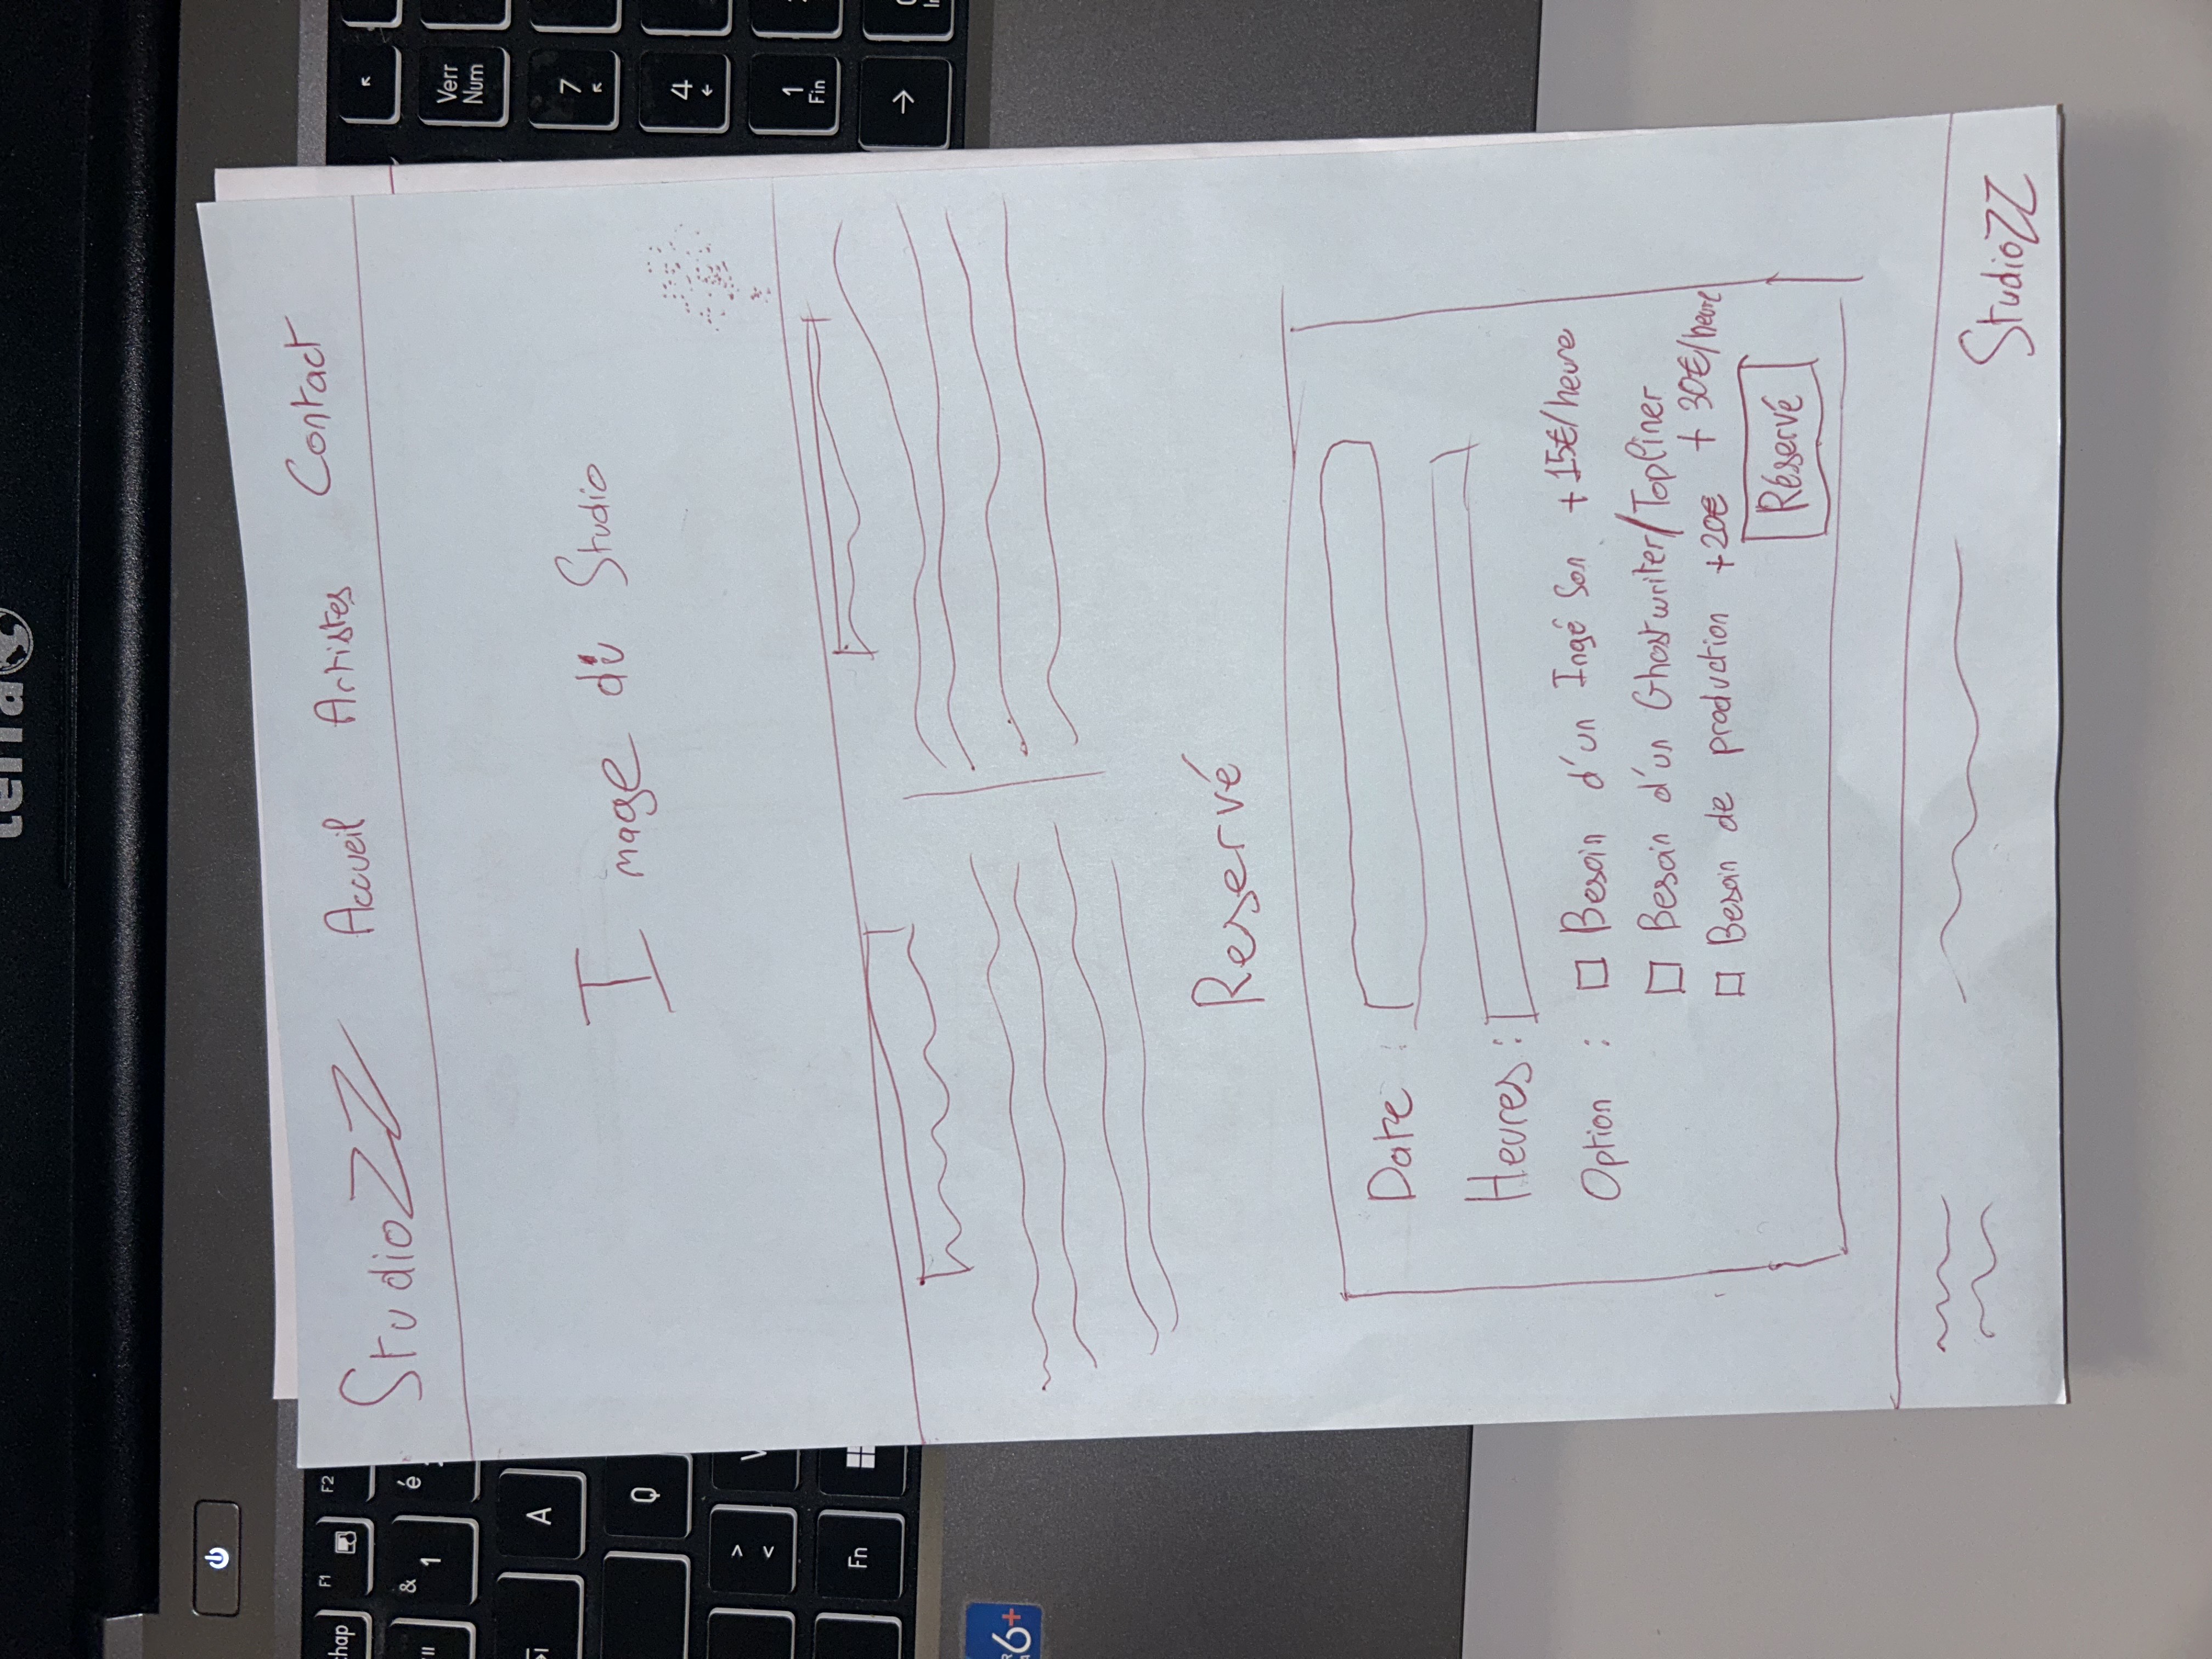 StudioZZ Accueil Artistes Contact
Image du Studio
Reservé
Date :
Heures :
Option : Besoin d'un Ingé Son +15€/heure
Besoin d'un Ghostwriter/Topliner + 30€/heure
Besoin de production +20€
Réservé
StudioZZ
Verr
Num
7
4
1
Fin
F2
F1
é
&
1
A
Q
>
<
Fn